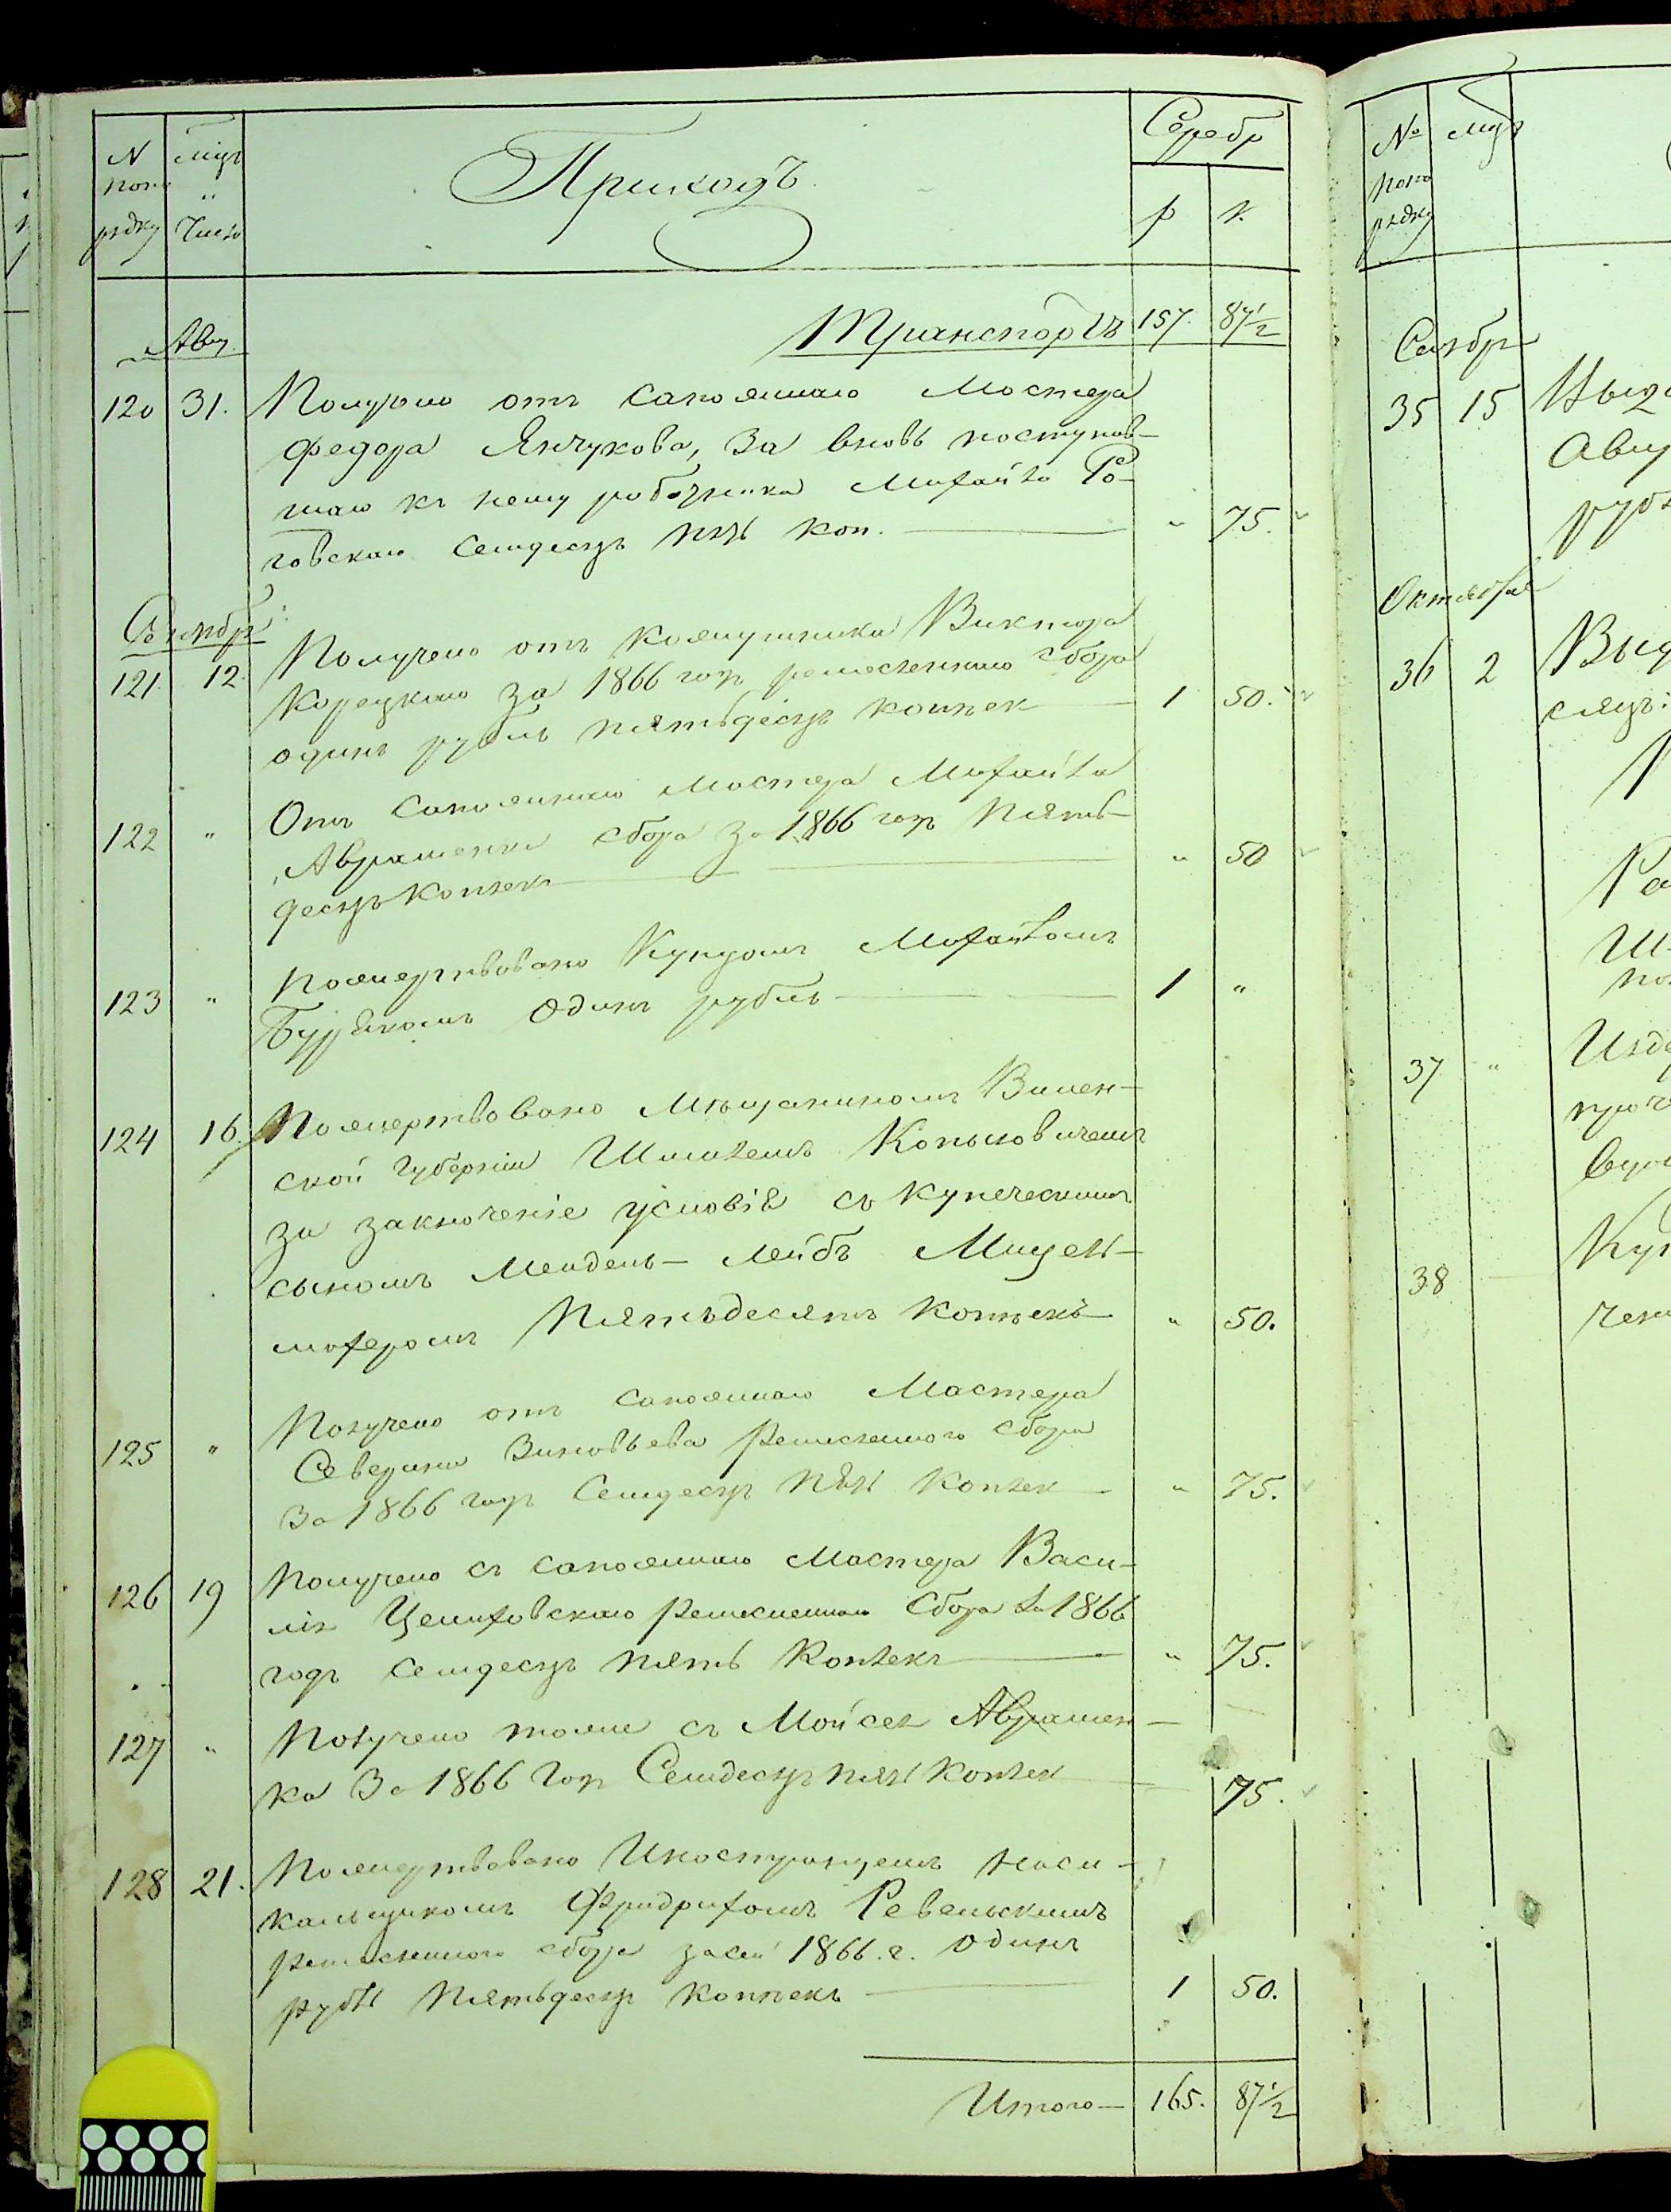 N мцъ Приходъ Серебр
попо "
рядку Число р к.
Авг. Транспортъ 157. 87 1/2
120 31. Получено отъ сапожнаго Мастера
Федора Янчукова, За вновь поступив-
шаго къ нему работника Михайла Ро-
говскаго Семдесяъ пять коп. " 75.
Сентябр:
121. 12. Получено отъ кожушника Виктора
Корецкаго за 1866 годъ ремесленнаго сбора
одинъ рубль пятьдесяъ копѣек 1 50.
122 " Отъ Сапожнаго Мастера Михайла
Аврашенки сбора за 1866 годъ Пять-
десяъ Копѣекъ " 50
123 " Пожертвовано Купцомъ Михайломъ
Бурякомъ Одинъ рубль 1 "
124 16. Пожертвовано Мѣщаниномъ Вилен-
ской Губерніи Шмилемъ Копыловичемъ
за заключеніе условія съ купеческимъ
сыномъ Мендель-Лейбъ Мицель-
махеромъ Пятьдесятъ копѣекъ " 50.
125 " Получено отъ сапожнаго Мастера
Северина Зиновьева Ремесленного сбора
За 1866 годъ Семдесяъ пять Копѣек " 75.
126 19 Получено съ сапожнаго Мастера Васи-
лія Целиховскаго Ремесленнаго Сбора за 1866
годъ Семдесяъ пять Копѣекъ " 75.
127 " Получено тоже съ Мойсея Аврамен-
ка За 1866 Годъ Семдесяъ пять Копѣек 75.
128 21. Пожертвовано Иностранцемъ Носи-
кальщикомъ Фридрихомъ Ревельскимъ
Ремесленного сбора за сей 1866. г. Одинъ
рубль Пятьдесяъ копѣекъ 1 50.
Итого — 165. 87 1/2
№ мцъ
попо
рядку
Сентбря
35 15
Авгу
рубл
Октября
36 2 Выд
сяцъ:
37 " Изд
проч
38 Куп
чен